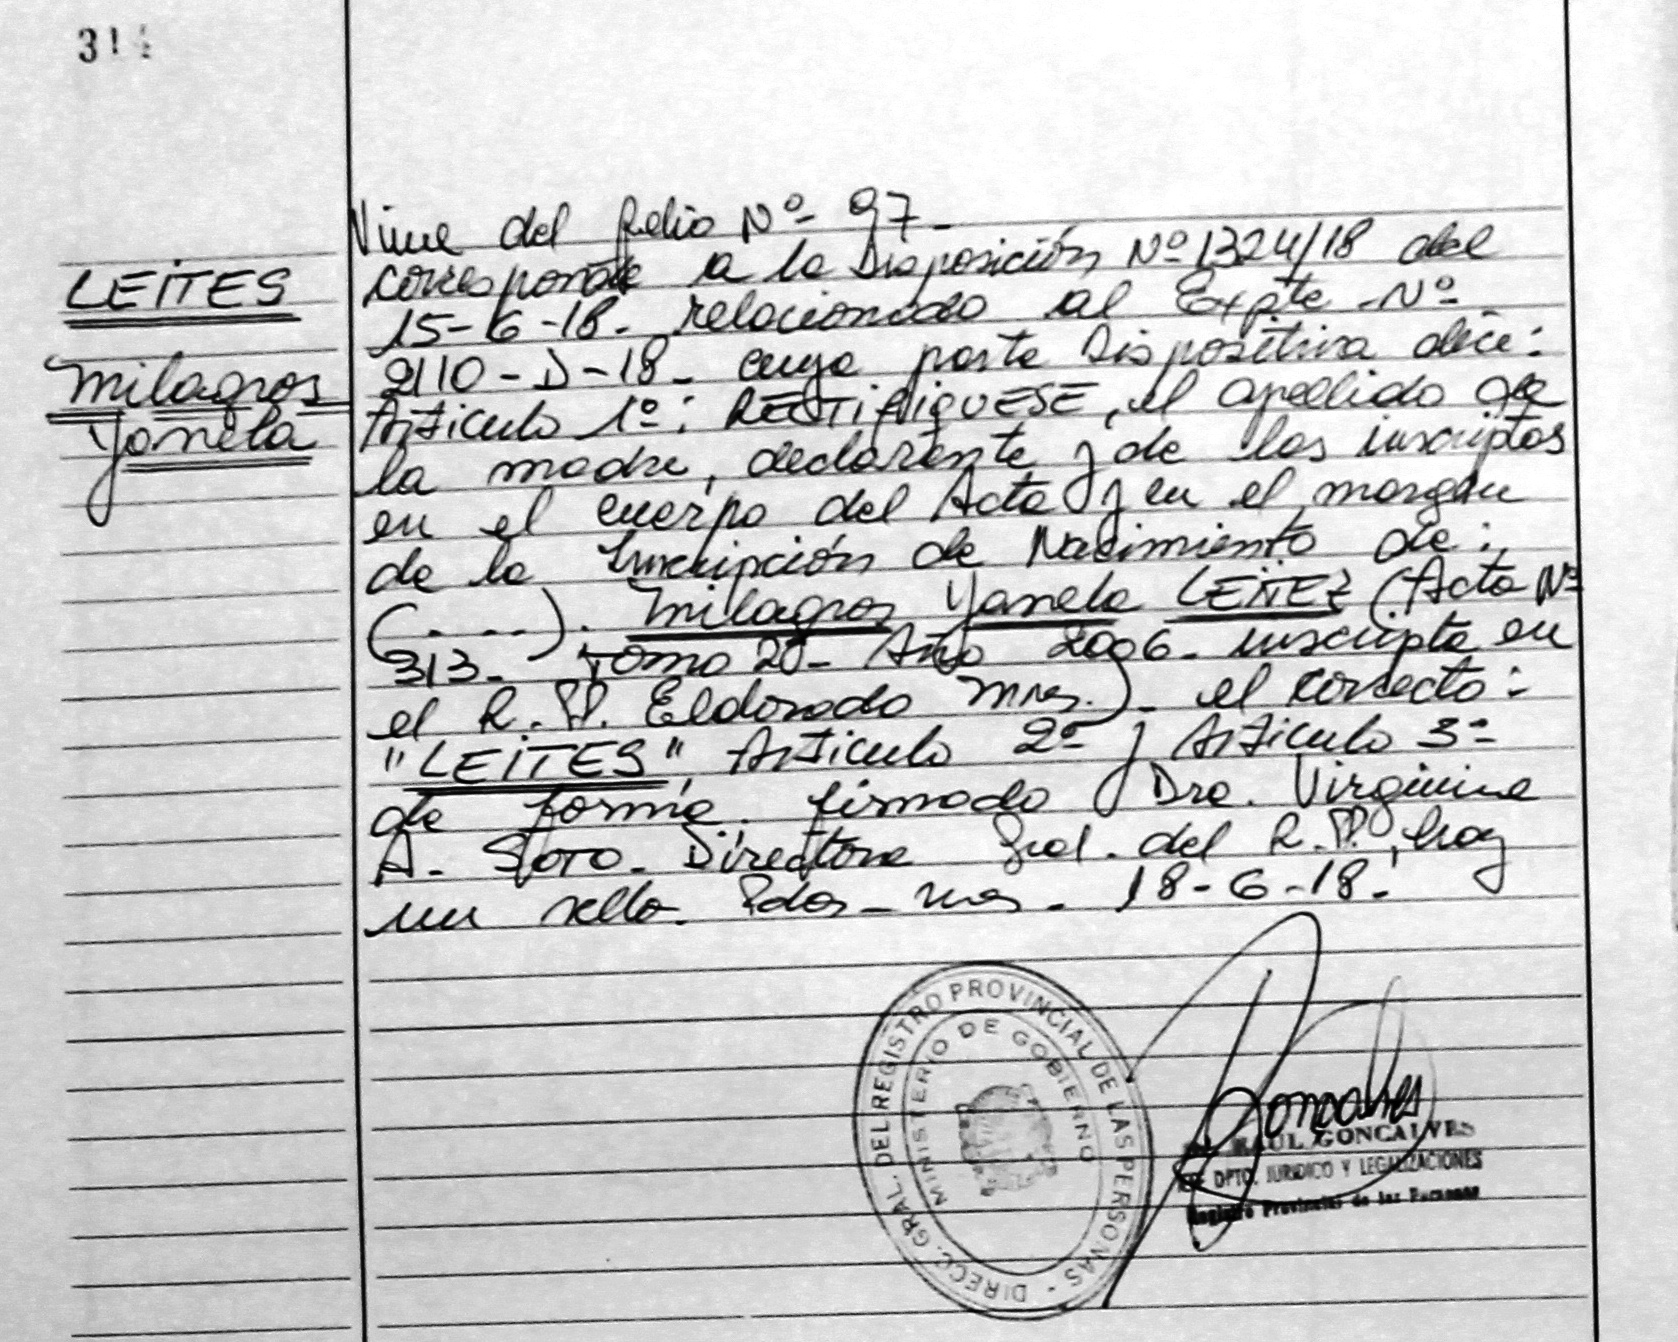 31
Viene del folio Nº- 97-
corresponde a la Disposición Nº 1324/18 del
15-6-18- relacionado al Expte -Nº
2110-D-18- cuya parte Dispositiva dice:
Articulo 1º: RECTIFIQUESE, el apellido de
la madre, declarante y de los inscriptos
en el cuerpo del Acta y en el margen
de la Inscripción de Nacimiento de:
(....). Milagros Yanela LEITEZ (Acta Nº
313- Tomo 2º- Año 2006- inscripta en
el R.P.P. Eldorado Mnes.)- el correcto:
"LEITES", Articulo 2º y Articulo 3º
de forma. firmado Dra. Virginia
A. Soto- Directora Gral. del R.P.P, hay
un sello. Pdas- Mnes- 18-6-18-
LEITES
Milagros
Yanela
DIRECC. GRAL. DEL REGISTRO PROVINCIAL DE LAS PERSONAS
MINISTERIO DE GOBIERNO
Goncalves
RAUL GONCALVES
DPTO. JURIDICO Y LEGALIZACIONES
Registro Provincial de las Personas